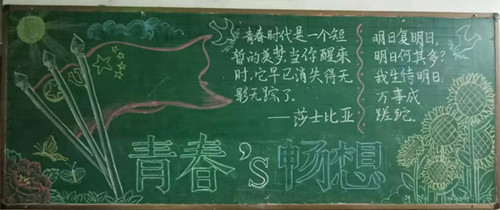 青春时代是一个短
暂的美梦,当你醒来
时,它早已消失得无
影无踪了。
——莎士比亚
明日复明日,
明日何其多?
我生待明日,
万事成
蹉跎。
青春's畅想